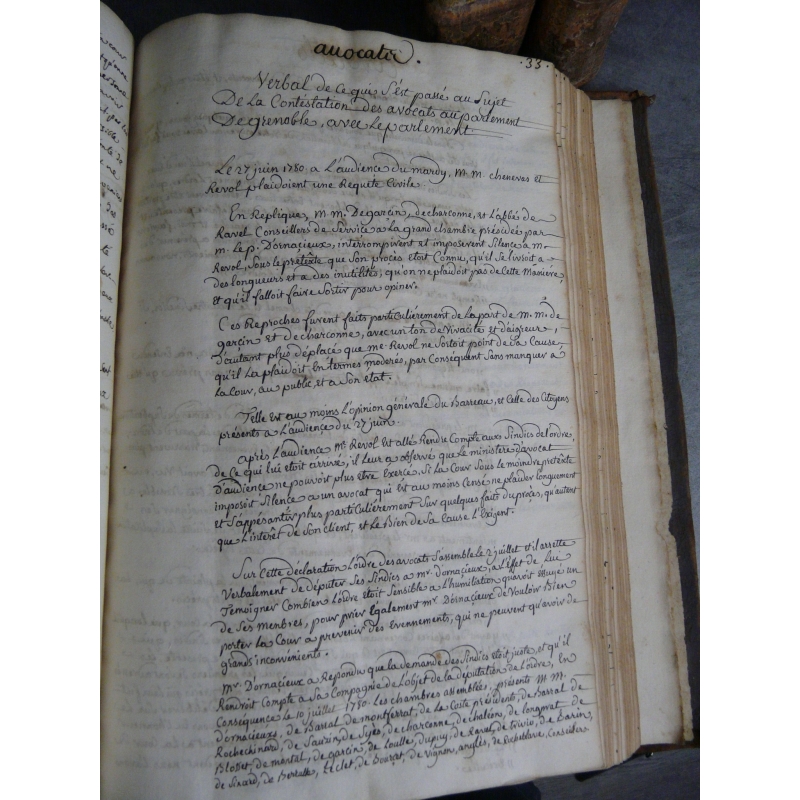 avocatie.
33.
Verbal de ce qui s'est passé au Sujet
De La Contestation des avocats au parlement
De grenoble, avec Le parlement
Le 27 juin 1780 a L'audience du mardy, m.m. cheneves et
Revol plaidoient une Requete Civile.
En Replique, m.m. De garcin, de charconne, et L'abbé de
Ravel Conseillers de Service a La grand chambre présidée par
m. Le p. D'ornacieux, interrompirent et imposerent Silence a m.e
Revol, Sous le prétexte que Son procès etoit Connu, qu'il se Livroit a
des longueurs et a des inutilités, qu'on ne plaidoit pas de Cette Maniere,
et qu'il falloit faire Sortir pour opiner.
Ces Reproches furent faits particulièrement de La part de m.m. de
garcin et de charconne, avec un ton de Vivacité et d'aigreur,
D'autant plus déplacé que me. Revol ne Sortoit point de Sa Cause,
qu'il La plaidoit En termes modérés, par Conséquent Sans manquer a
La Cour, au public, et a Son état.
Telle Est au moins L'opinion générale du Barreau, et Celle des Citoyens
présents a L'audience du 27 juin.
après L'audience Me. Revol Est allé Rendre Compte aux Sindics de L'ordre,
de Ce qui Lui etoit arrivé, il Leur a observé que Le ministere d'avocat
D'audience ne pouvoit plus etre Exercé, Si La Cour Sous le moindre pretexte
imposoit Silence a un avocat qui Est au moins Censé ne plaider Longuement
et S'appésantir plus particulièrement Sur quelques faits du procès, qu'autant
que L'intérêt de Son client, et Le Bien de Sa Cause L'Exigent.
Sur Cette déclaration L'ordre des avocats S'assemble Le 2 juillet et il arrette
Verbalement de députer Ses Sindics a mr. D'ornacieux, a L'effet de Lui
Temoigner Combien L'ordre etoit Sensible a L'humiliation qu'avoit Essuyé un
de Ses Membres, pour prier également mr. D'ornacieux de Vouloir Bien
porter La Cour a prévenir des Evennements, qui ne peuvent qu'avoir de
grands inconvénients.
Mr. D'ornacieux a Répondu que La demande des Sindics etoit juste, et qu'il
Rendroit Compte a Sa Compagnie de L'objet de La députation de L'ordre, En
Conséquence Le 10 juillet 1780. Les chambres assemblées, présents M.M.
D'ornacieux, de Barral de montferrat, de La Coste présidents, de Barral de
Rochechinard, de Sauzin, de Sayes, de charconne, de chaléon, de Longpra, de
Blosset, de mental, de garcin, de Loulle, Dupuy, de Ravel, de trivio, de Barin,
de Sinard, de Bertulle, de Bouzat, de Vignon, anglès, de Conseillers